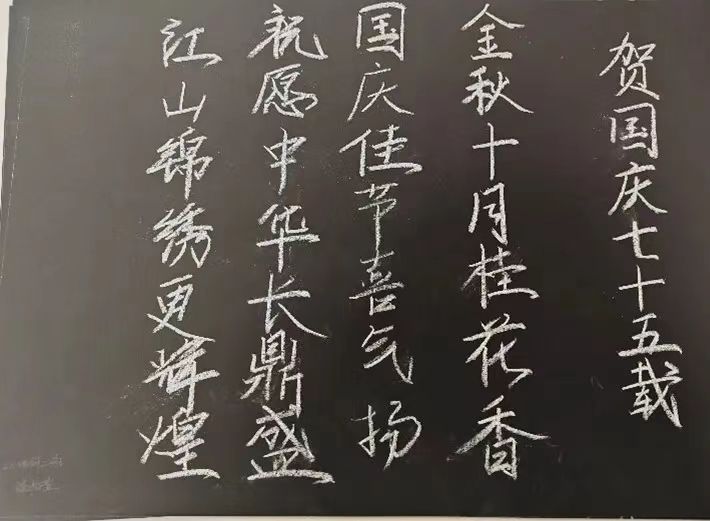 贺国庆七十五载
金秋十月桂花香
国庆佳节喜气扬
祝愿中华长鼎盛
江山锦绣更辉煌